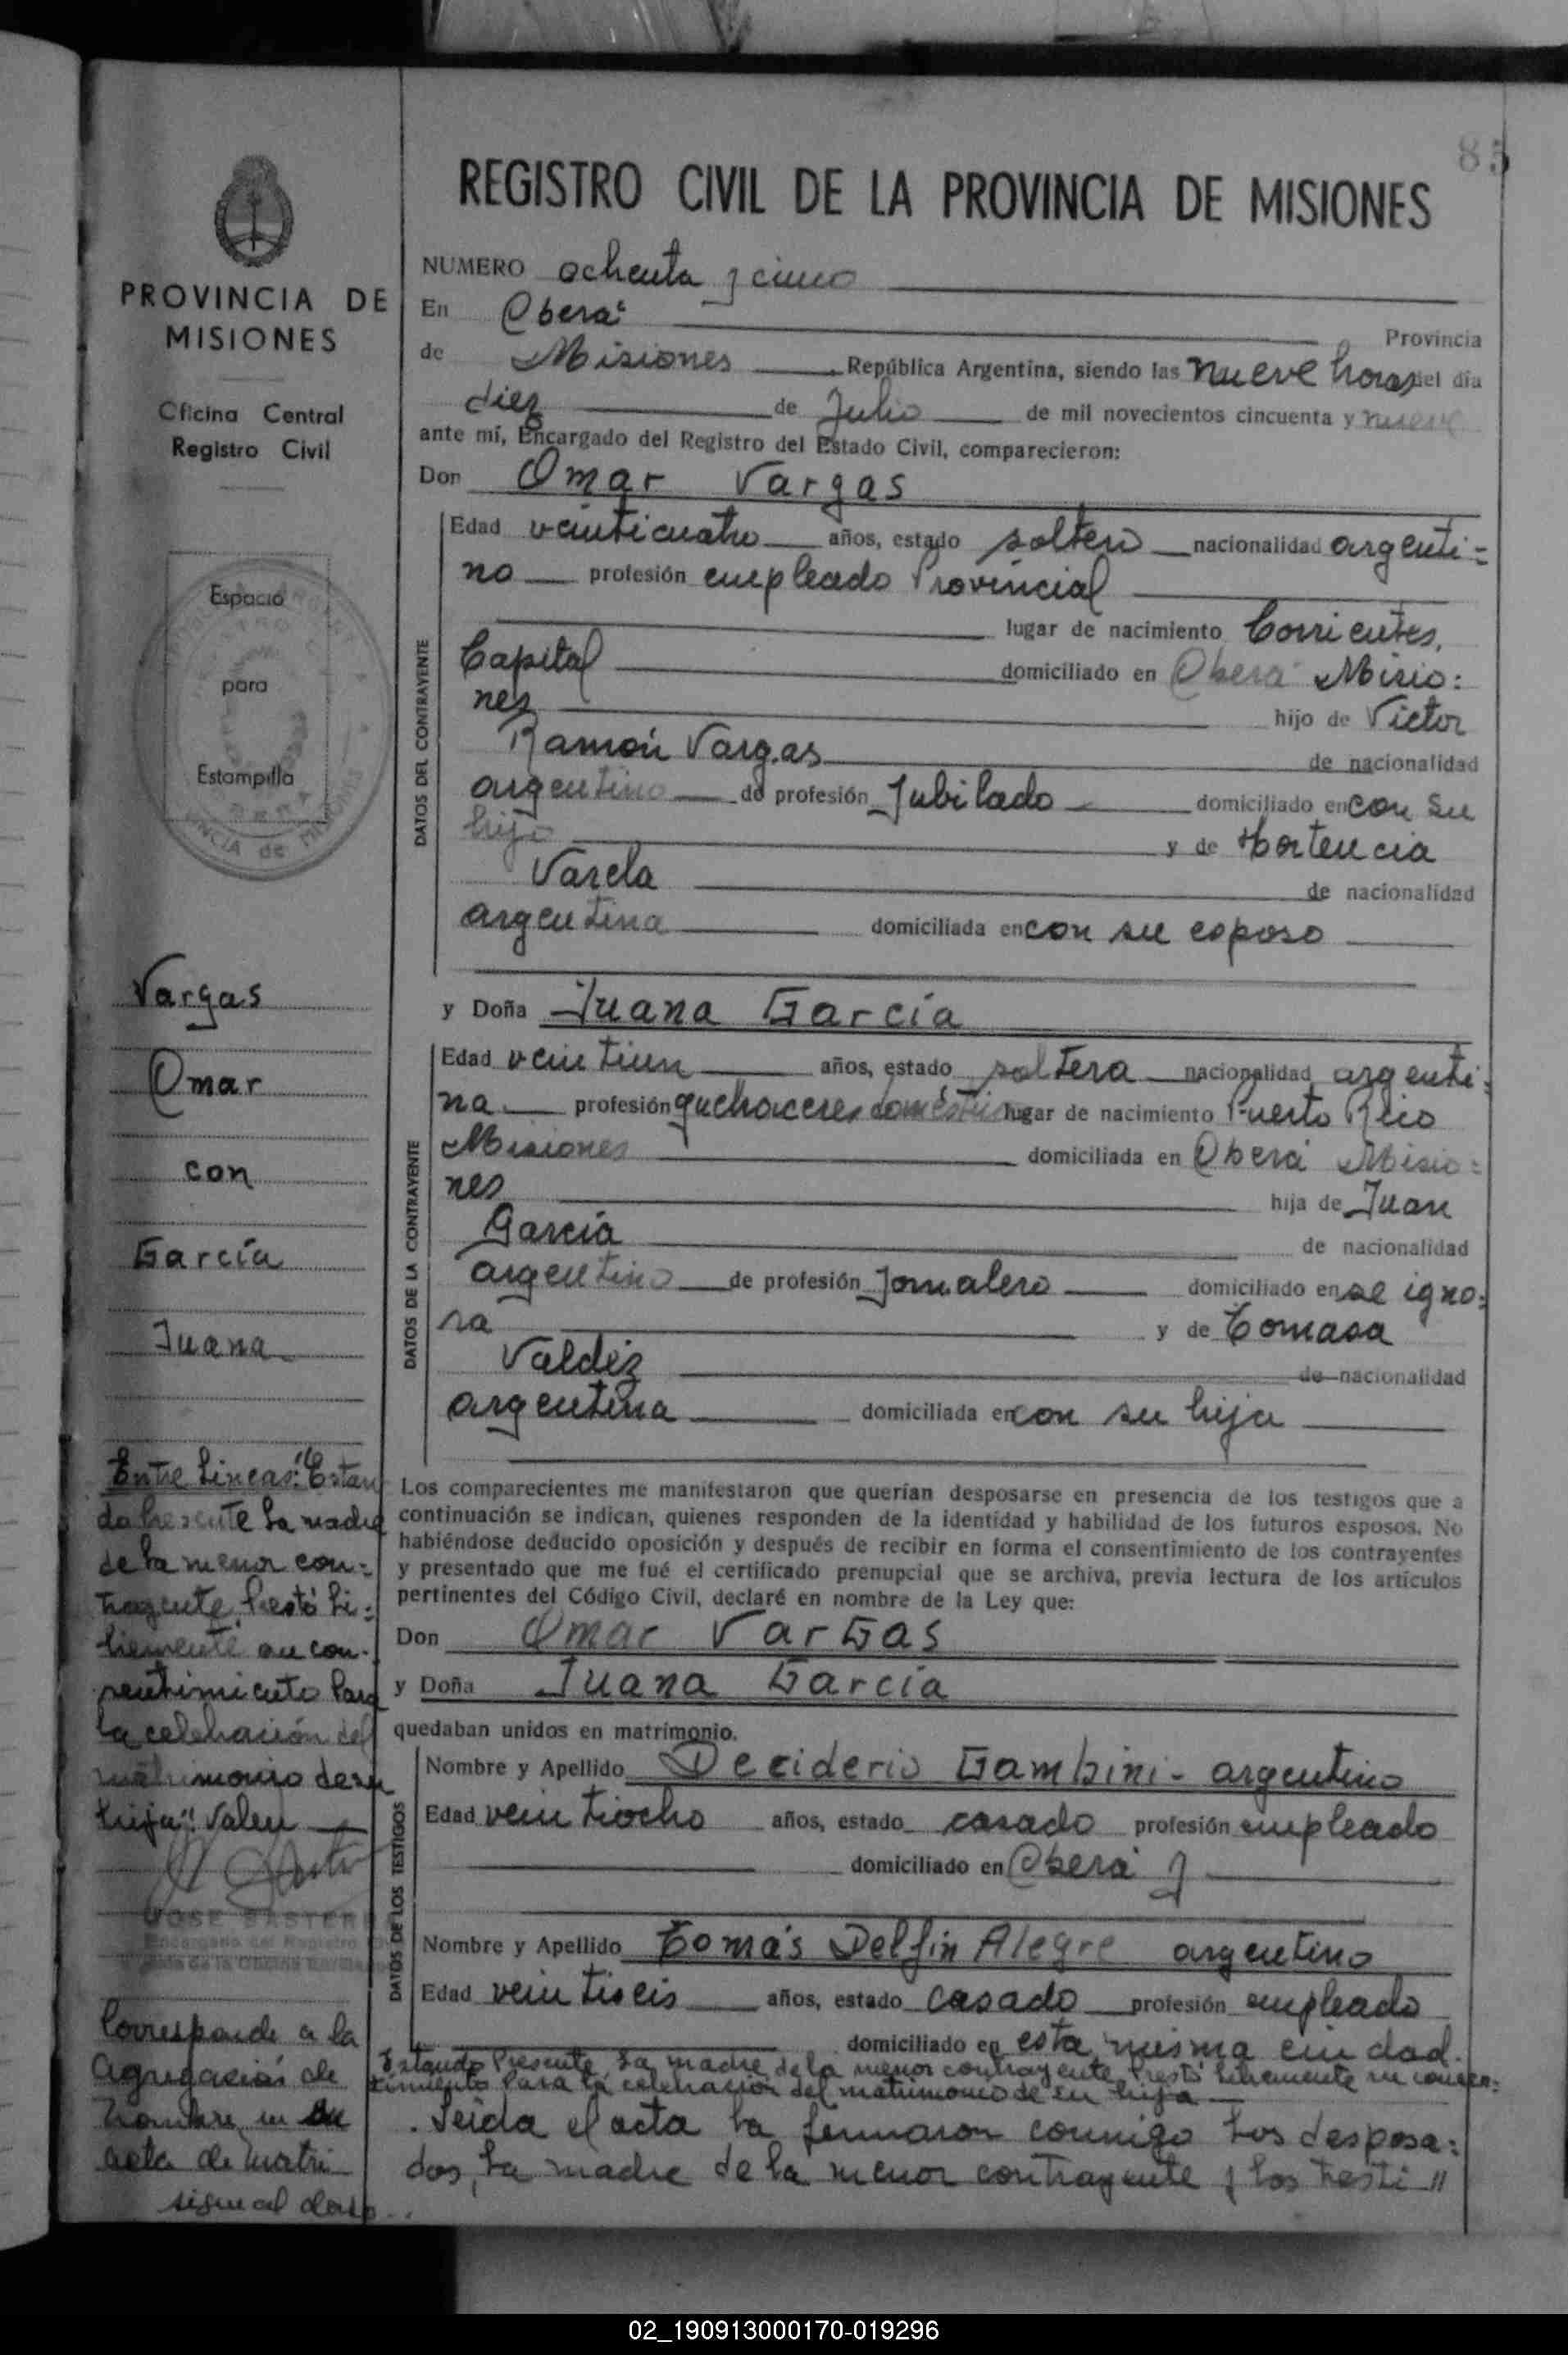 85
REGISTRO CIVIL DE LA PROVINCIA DE MISIONES
PROVINCIA DE
MISIONES
Oficina Central
Registro Civil
Espacio
para
Estampilla
Vargas
Omar
con
García
Juana
Entre Lineas: "Estan
do Presente la madre
de la menor con=
trayente, Prestó Li=
bremente su con-
sentimiento Para
la celebración del
matrimonio de su
hija". Valen
JOSE BASTER
Encargado del Registro
Corresponde a la
agregación de
nombre en su
acta de matri
sigue al dorso
NUMERO ochenta y cinco
En Oberá Provincia
de Misiones República Argentina, siendo las nueve horas del día
diez de Julio de mil novecientos cincuenta y nueve
ante mí, Encargado del Registro del Estado Civil, comparecieron:
Don Omar Vargas
DATOS DEL CONTRAYENTE
Edad veinticuatro años, estado soltero nacionalidad argenti=
no profesión empleado Provincial
lugar de nacimiento Corrientes,
Capital domiciliado en Oberá Misio=
nes hijo de Victor
Ramón Vargas de nacionalidad
argentino de profesión Jubilado domiciliado en con su
hijo y de Hortencia
Varela de nacionalidad
argentina domiciliada en con su esposo
y Doña Juana García
DATOS DE LA CONTRAYENTE
Edad veintiun años, estado soltera nacionalidad argenti=
na profesión quehaceres domésticos lugar de nacimiento Puerto Rico
Misiones domiciliada en Oberá Misio=
nes hija de Juan
García de nacionalidad
argentino de profesión Jornalero domiciliado en se igno=
ra y de Tomasa
Valdéz de nacionalidad
argentina domiciliada en con su hija
Los comparecientes me manifestaron que querían desposarse en presencia de los testigos que a
continuación se indican, quienes responden de la identidad y habilidad de los futuros esposos. No
habiéndose deducido oposición y después de recibir en forma el consentimiento de los contrayentes
y presentado que me fué el certificado prenupcial que se archiva, previa lectura de los artículos
pertinentes del Código Civil, declaré en nombre de la Ley que:
Don Omar Vargas
y Doña Juana García
quedaban unidos en matrimonio.
DATOS DE LOS TESTIGOS
Nombre y Apellido Deciderio Gambini - argentino
Edad veintiocho años, estado casado profesión empleado
domiciliado en Oberá y
Nombre y Apellido Tomás Delfin Alegre argentino
Edad veintiseis años, estado casado profesión empleado
domiciliado en esta misma ciudad.
Estando Presente La madre de la menor contrayente, Prestó libremente su consen=
timiento Para la celebración del matrimonio de su hija
. Leida el acta la firmaron conmigo los desposa=
dos, la madre de la menor contrayente y los testi "
02_190913000170-019296